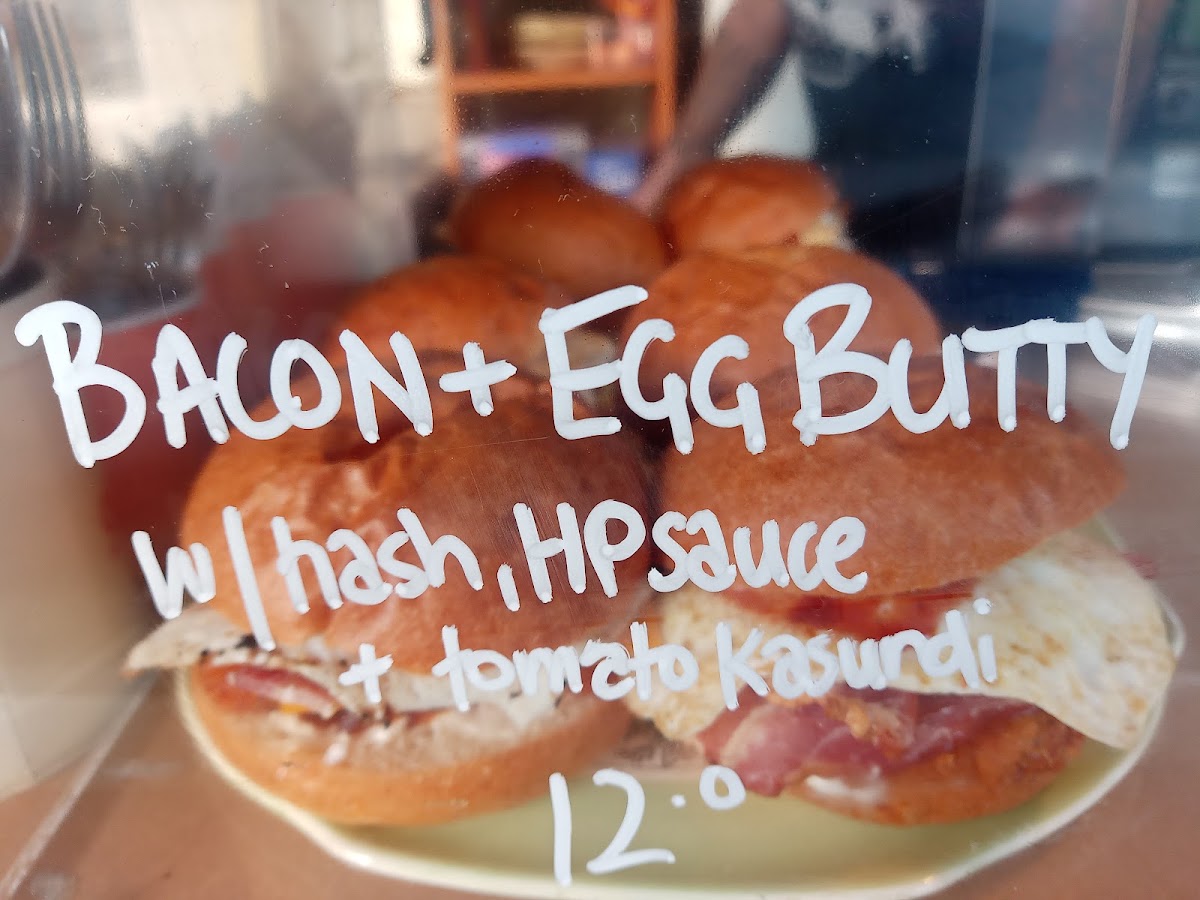 BACON + EGG BUTTY
w/ hash, HP sauce
+ tomato Kasundi
12.0